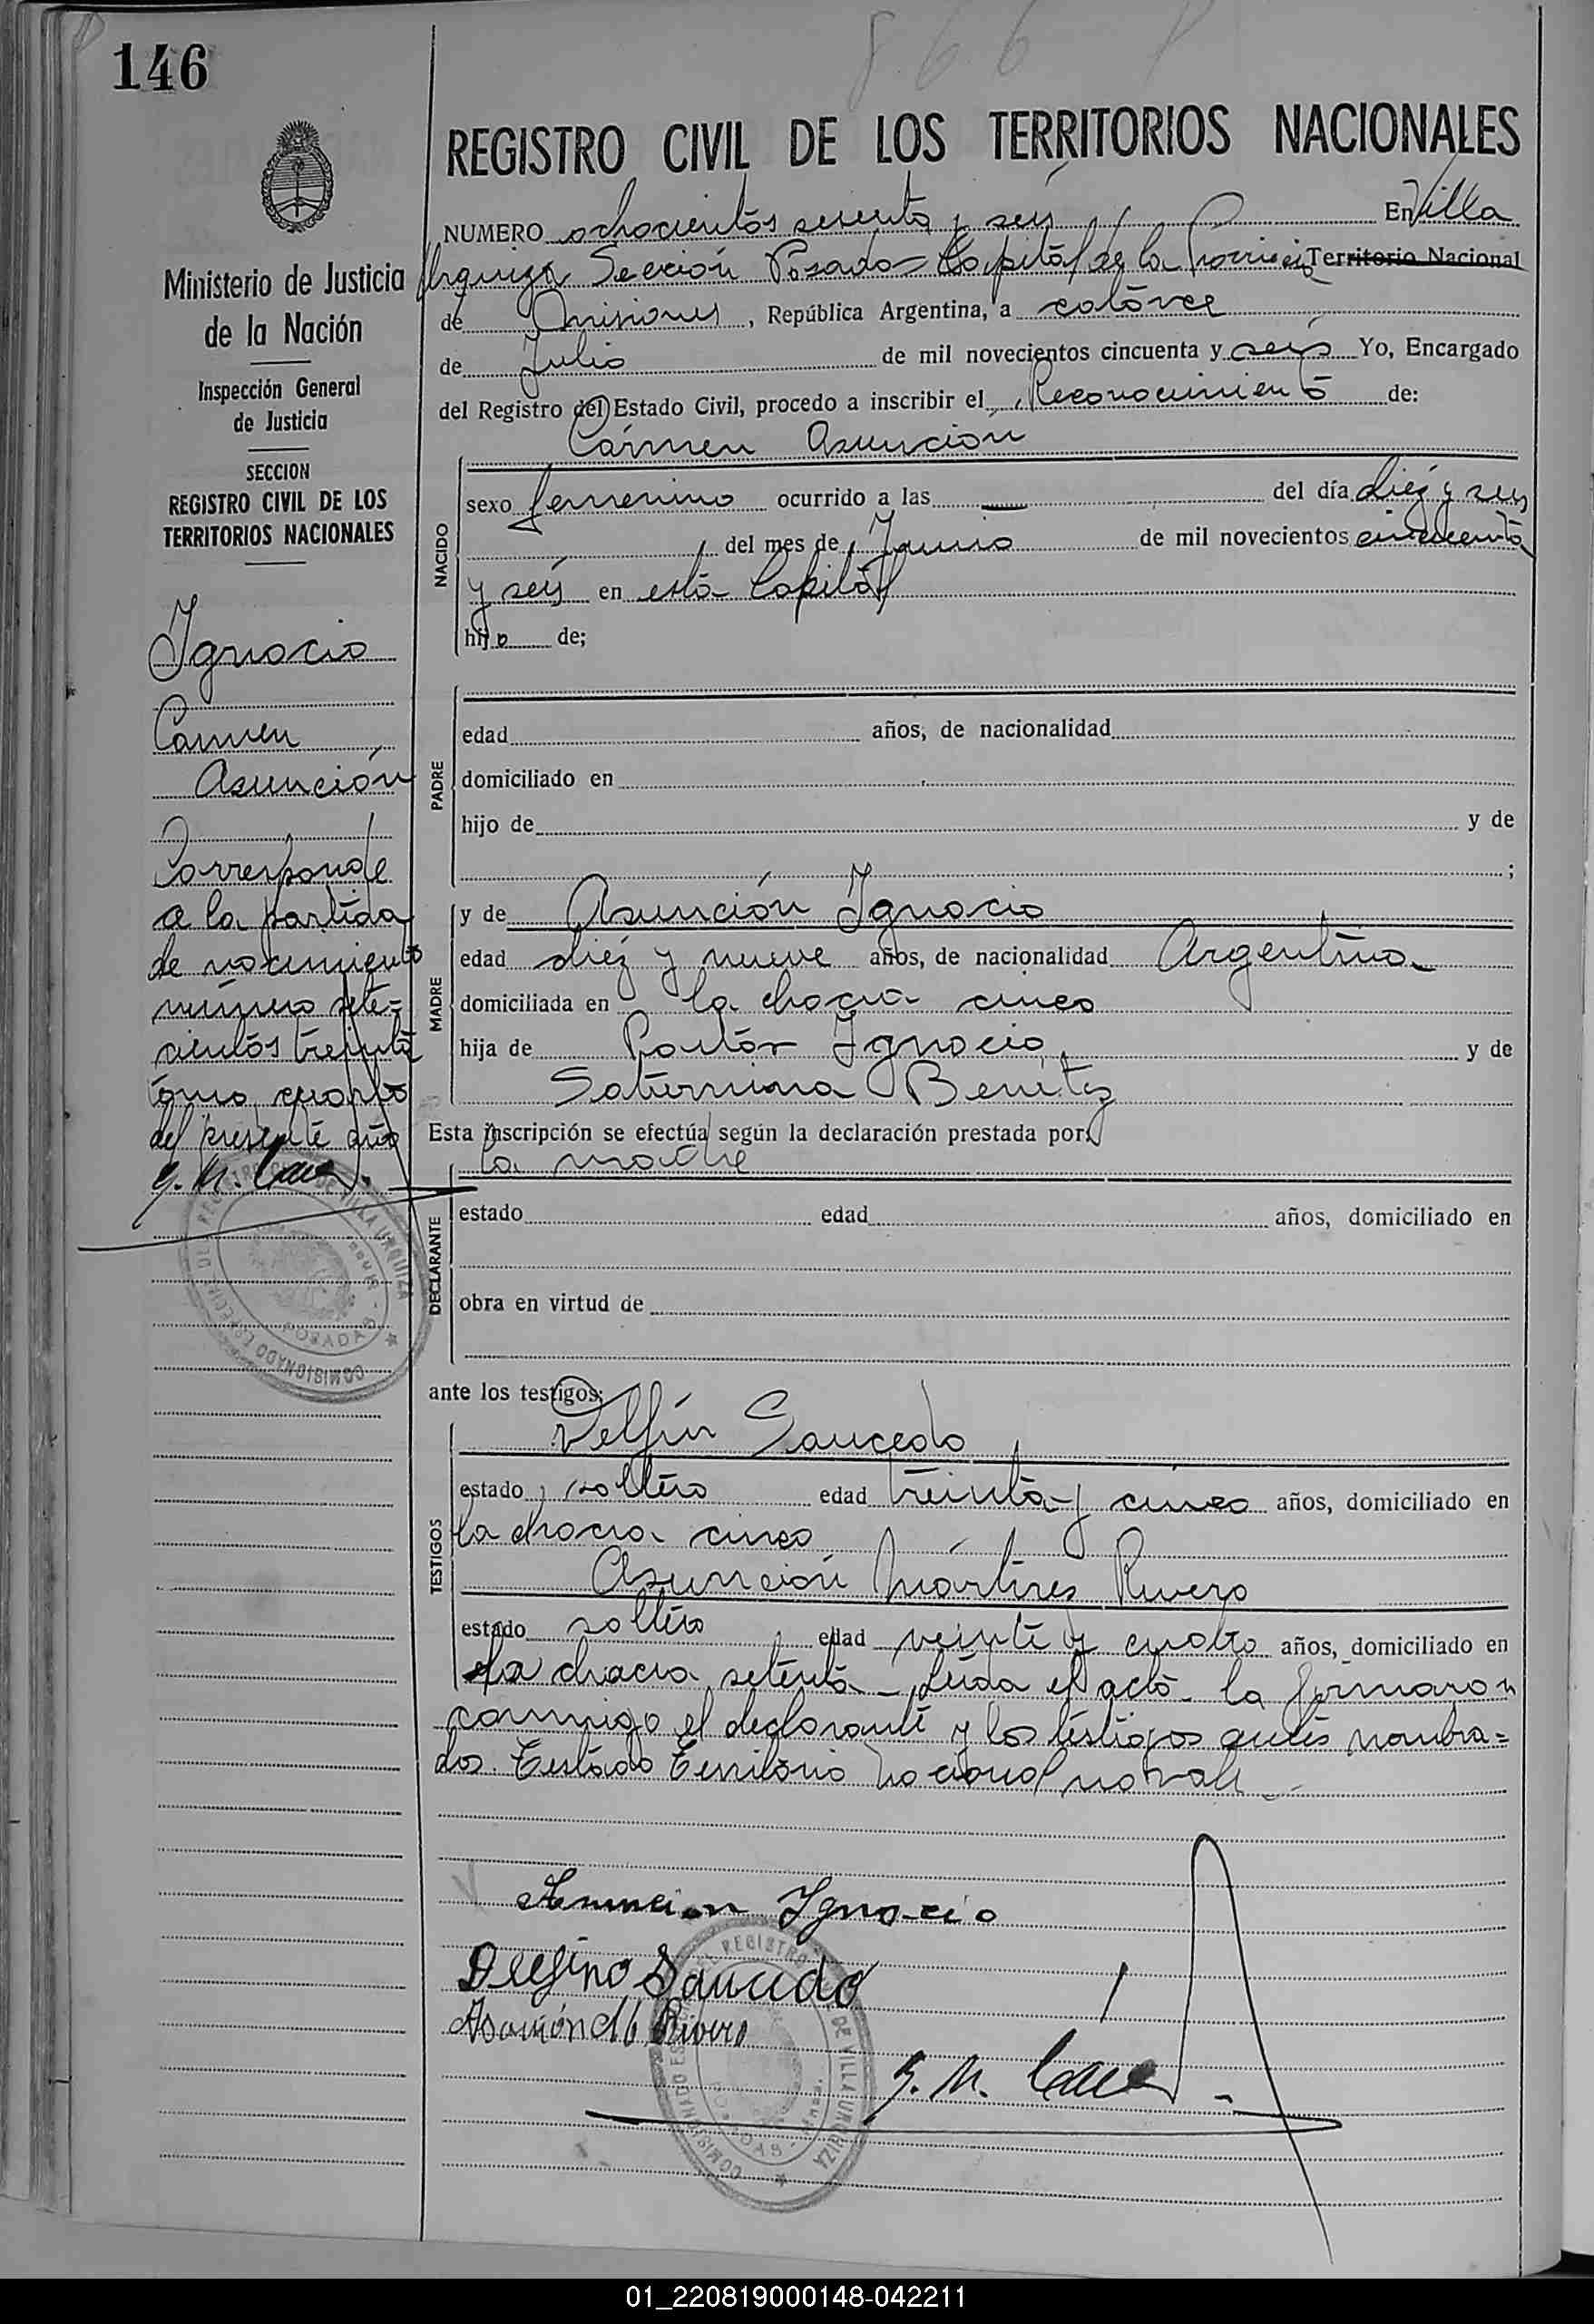 866
146
REGISTRO CIVIL DE LOS TERRITORIOS NACIONALES
NUMERO ochocientos sesenta y seis En Villa
Urquiza Sección Posadas Capital de la Provincia Territorio Nacional
de Misiones, República Argentina, a catorce
de Julio de mil novecientos cincuenta y seis Yo, Encargado
del Registro del Estado Civil, procedo a inscribir el Reconocimiento de:
Cármen Asunción
Ministerio de Justicia
de la Nación
Inspección General
de Justicia
SECCION
REGISTRO CIVIL DE LOS
TERRITORIOS NACIONALES
Ignacio
Carmen
Asunción
Corresponde
a la partida
de nacimiento
número sete=
cientos treinta
tomo cuarto
del presente año
COMISIONADO ESPECIAL DEL REGISTRO CIVIL DE VILLA URQUIZA
POSADAS
NACIDO
sexo femenino ocurrido a las — del día diez y seis
del mes de Junio de mil novecientos cincuenta
y seis en esta Capital
hijo de;
PADRE
edad años, de nacionalidad
domiciliado en
hijo de y de
;
MADRE
y de Asunción Ignacio
edad diez y nueve años, de nacionalidad Argentina
domiciliada en la chacra cinco
hija de Pastor Ignacio y de
Saturnina Benitez
Esta inscripción se efectúa según la declaración prestada por:
la madre
DECLARANTE
estado edad años, domiciliado en
obra en virtud de
ante los testigos:
TESTIGOS
Delfín Saucedo
estado soltero edad treinta y cinco años, domiciliado en
la chacra cinco
Asunción Mártires Rivero
estado soltero edad veinte y cuatro años, domiciliado en
la chacra setenta - Leída el acta la firmaron
conmigo el declarante y los testigos antes nombra=
dos. Testado Territorio Nacional no vale
Asuncion Ignacio
Delfino Saucedo
Asención M Rivero
REGISTRO DE VILLA URQUIZA
01_220819000148-042211